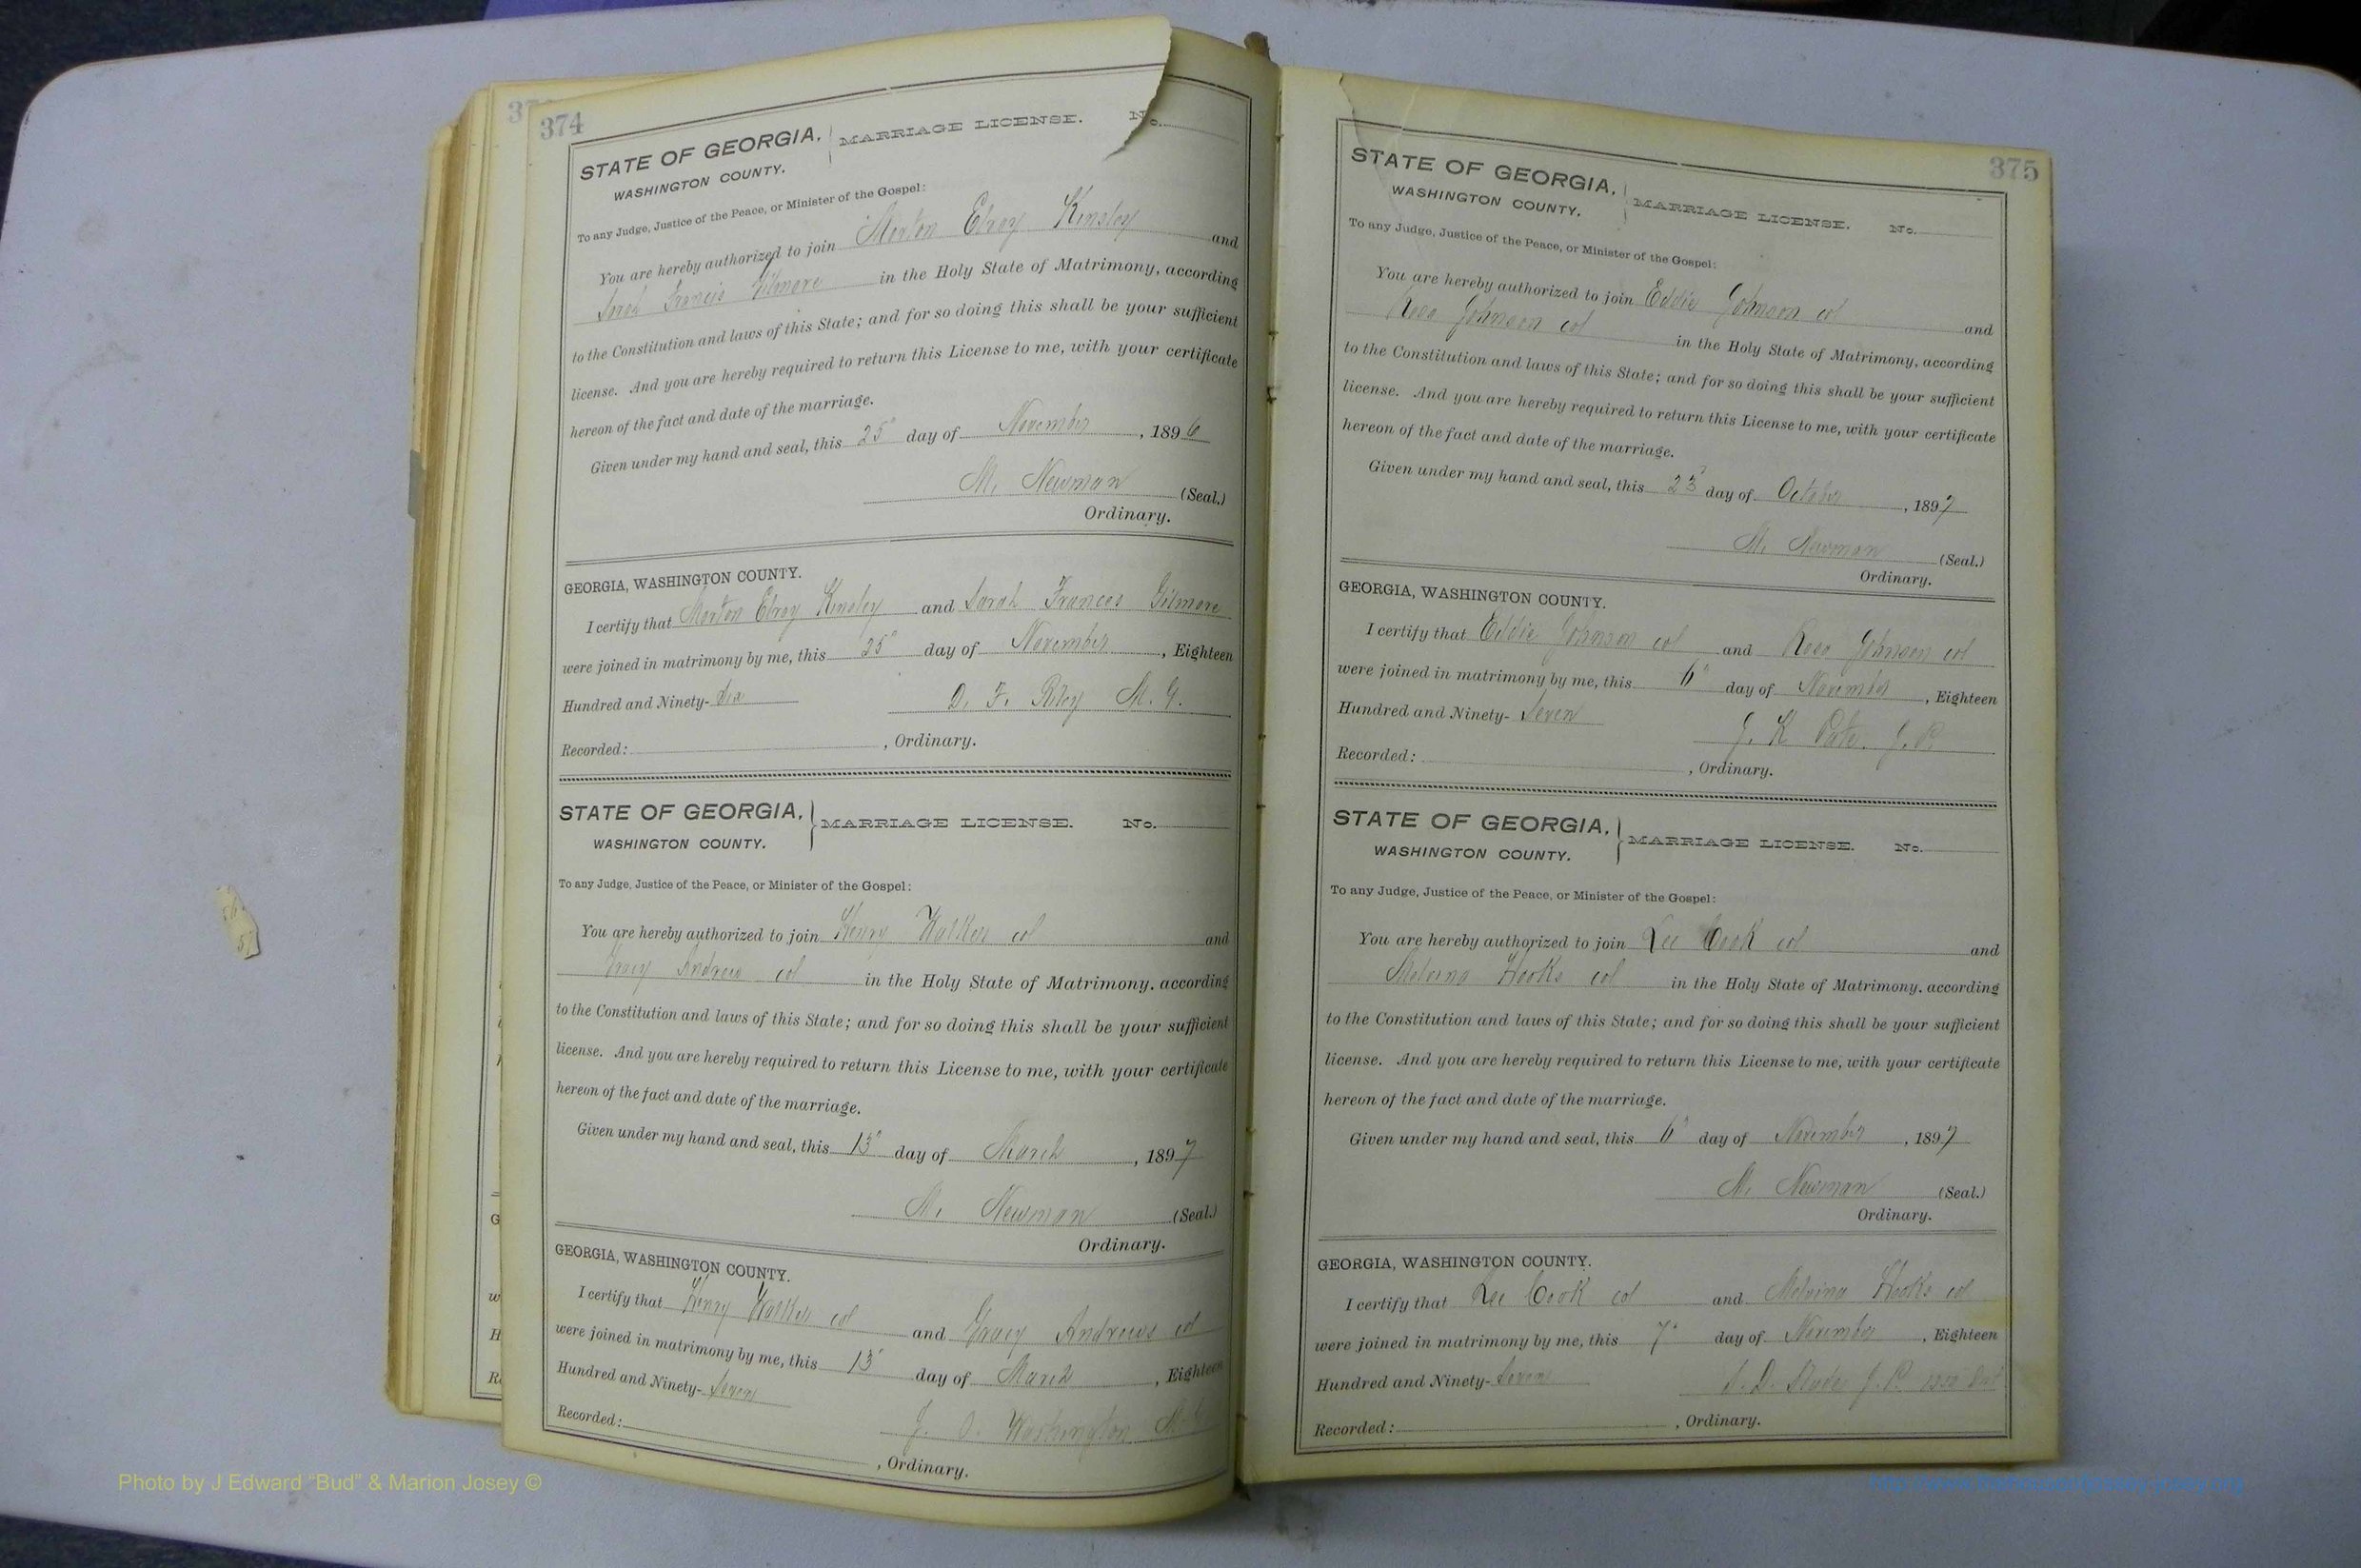 374
STATE OF GEORGIA, MARRIAGE LICENSE. No.
WASHINGTON COUNTY.
To any Judge, Justice of the Peace, or Minister of the Gospel:
You are hereby authorized to join Morton Elroy Kinsley and
Sarah Francis Gilmore in the Holy State of Matrimony, according
to the Constitution and laws of this State; and for so doing this shall be your sufficient
license. And you are hereby required to return this License to me, with your certificate
hereon of the fact and date of the marriage.
Given under my hand and seal, this 25" day of November, 1896
M. Newman (Seal.)
Ordinary.
GEORGIA, WASHINGTON COUNTY.
I certify that Morton Elroy Kinsley and Sarah Frances Gilmore
were joined in matrimony by me, this 25" day of November, Eighteen
Hundred and Ninety-Six D. F. Riley M. G.
Recorded: , Ordinary.
STATE OF GEORGIA, MARRIAGE LICENSE. No.
WASHINGTON COUNTY.
To any Judge, Justice of the Peace, or Minister of the Gospel:
You are hereby authorized to join Henry Walker col and
Gracy Andrews col in the Holy State of Matrimony, according
to the Constitution and laws of this State; and for so doing this shall be your sufficient
license. And you are hereby required to return this License to me, with your certificate
hereon of the fact and date of the marriage.
Given under my hand and seal, this 13" day of March, 1897
M. Newman (Seal.)
Ordinary.
GEORGIA, WASHINGTON COUNTY.
I certify that Henry Walker col and Gracy Andrews col
were joined in matrimony by me, this 13" day of March, Eighteen
Hundred and Ninety-Seven
J. O. Washington
Recorded: , Ordinary.
375
STATE OF GEORGIA, MARRIAGE LICENSE. No.
WASHINGTON COUNTY.
To any Judge, Justice of the Peace, or Minister of the Gospel:
You are hereby authorized to join Eddie Johnson col and
Rosa Johnson col in the Holy State of Matrimony, according
to the Constitution and laws of this State; and for so doing this shall be your sufficient
license. And you are hereby required to return this License to me, with your certificate
hereon of the fact and date of the marriage.
Given under my hand and seal, this 23" day of October, 1897
M. Newman (Seal.)
Ordinary.
GEORGIA, WASHINGTON COUNTY.
I certify that Eddie Johnson col and Rosa Johnson col
were joined in matrimony by me, this 6" day of November, Eighteen
Hundred and Ninety-Seven J. K. J. P.
Recorded: , Ordinary.
STATE OF GEORGIA, MARRIAGE LICENSE. No.
WASHINGTON COUNTY.
To any Judge, Justice of the Peace, or Minister of the Gospel:
You are hereby authorized to join Lee Cook col and
Melvina Hooks col in the Holy State of Matrimony, according
to the Constitution and laws of this State; and for so doing this shall be your sufficient
license. And you are hereby required to return this License to me, with your certificate
hereon of the fact and date of the marriage.
Given under my hand and seal, this 6" day of November, 1897
M. Newman (Seal.)
Ordinary.
GEORGIA, WASHINGTON COUNTY.
I certify that Lee Cook col and Melvina Hooks col
were joined in matrimony by me, this 7" day of November, Eighteen
Hundred and Ninety-Seven J. P.
Recorded: , Ordinary.
Photo by J Edward "Bud" & Marion Josey ©